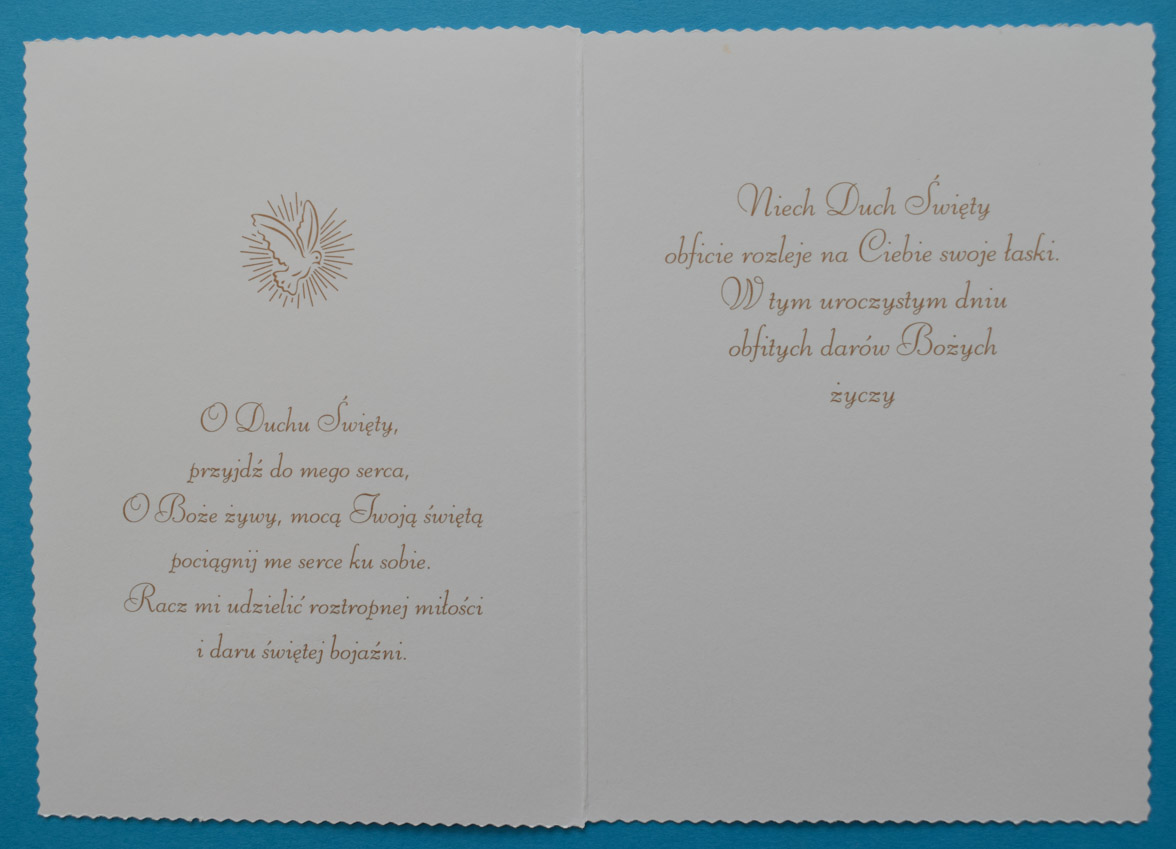 O Duchu Święty,
przyjdź do mego serca,
O Boże żywy, mocą Twoją świętą
pociągnij me serce ku sobie.
Racz mi udzielić roztropnej miłości
i daru świętej bojaźni.
Niech Duch Święty
obficie rozleje na Ciebie swoje łaski.
W tym uroczystym dniu
obfitych darów Bożych
życzy